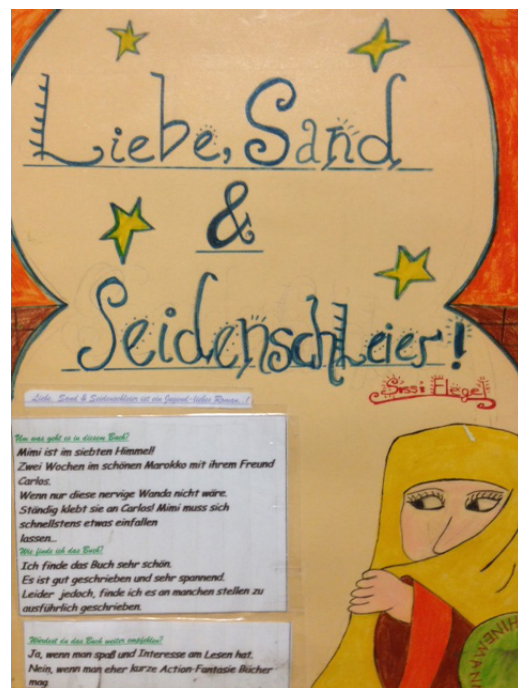 Liebe, Sand
&
Seidenschleier!
Sissi Flegel
Liebe, Sand & Seidenschleier ist ein Jugend-liebes Roman..!
Um was geht es in diesem Buch?
Mimi ist im siebten Himmel!
Zwei Wochen im schönen Marokko mit ihrem Freund
Carlos.
Wenn nur diese nervige Wanda nicht wäre.
Ständig klebt sie an Carlos! Mimi muss sich
schnellstens etwas einfallen
lassen...
Wie finde ich das Buch?
Ich finde das Buch sehr schön.
Es ist gut geschrieben und sehr spannend.
Leider jedoch, finde ich es an manchen stellen zu
ausführlich geschrieben.
Würdest du das Buch weiter empfehlen?
Ja, wenn man spaß und Interesse am Lesen hat.
Nein, wenn man eher kurze Action-Fantasie Bücher
mag